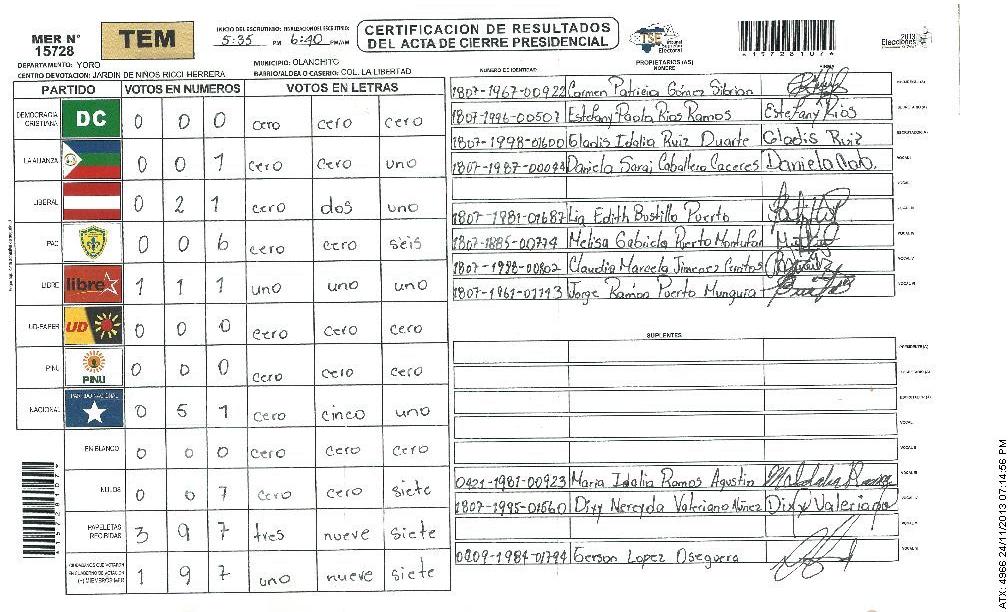 MER N° 15728
TEM
INICIO DEL ESCRUTINIO: FINALIZACION DEL ESCRUTINIO:
5:35 PM 6:40 PM/AM
CERTIFICACION DE RESULTADOS
DEL ACTA DE CIERRE PRESIDENCIAL
TSE
Tribunal Supremo Electoral
2013
Elecciones
DEPARTAMENTO: YORO
MUNICIPIO: OLANCHITO
CENTRO DE VOTACION: JARDIN DE NIÑOS RICCI HERRERA
BARRIO/ALDEA O CASERIO: COL. LA LIBERTAD
PROPIETARIOS (AS)
NUMERO DE IDENTIDAD NOMBRE FIRMA
PARTIDO VOTOS EN NUMEROS VOTOS EN LETRAS
DEMOCRACIA CRISTIANA DC 0 0 0 cero cero cero
LA ALIANZA 0 0 1 cero cero uno
LIBERAL 0 2 1 cero dos uno
PAC 0 0 6 cero cero seis
LIBRE libre 1 1 1 uno uno uno
UD-FAPER UD 0 0 0 cero cero cero
PINU PINU 0 0 0 cero cero cero
NACIONAL PARTIDO NACIONAL 0 5 1 cero cinco uno
EN BLANCO 0 0 0 cero cero cero
NULOS 0 0 7 cero cero siete
PAPELETAS RECIBIDAS 3 9 7 tres nueve siete
CIUDADANOS QUE VOTARON EN CUADERNO DE VOTACION (+) MIEMBROS MER 1 9 7 uno nueve siete
1807-1967-00922 Carmen Patricia Gómez Sibrian
1807-1996-00507 Estefany Paola Rios Ramos Estefany Rios
1807-1998-01600 Gladis Idalia Ruiz Duarte Gladis Ruiz
1807-1987-00094 Daniela Sarai Caballero Caceres
1807-1981-01687 Lia Edith Bustillo Puerto
1807-1885-00774 Melisa Gabriela Puerto Montufar
1807-1998-00802 Claudia Marcela Jimenez
1807-1961-01793 Jorge Ramón Puerto Munguia
SUPLENTES
0421-1981-00923 Maria Idalia Ramos Agustin
1807-1995-01560 Dixy Nereyda Valeriano Núñez Dixy Valeriano
0209-1984-01794 Gerson Lopez Oseguera
ATX: 4966 24/11/2013 07:14:56 PM